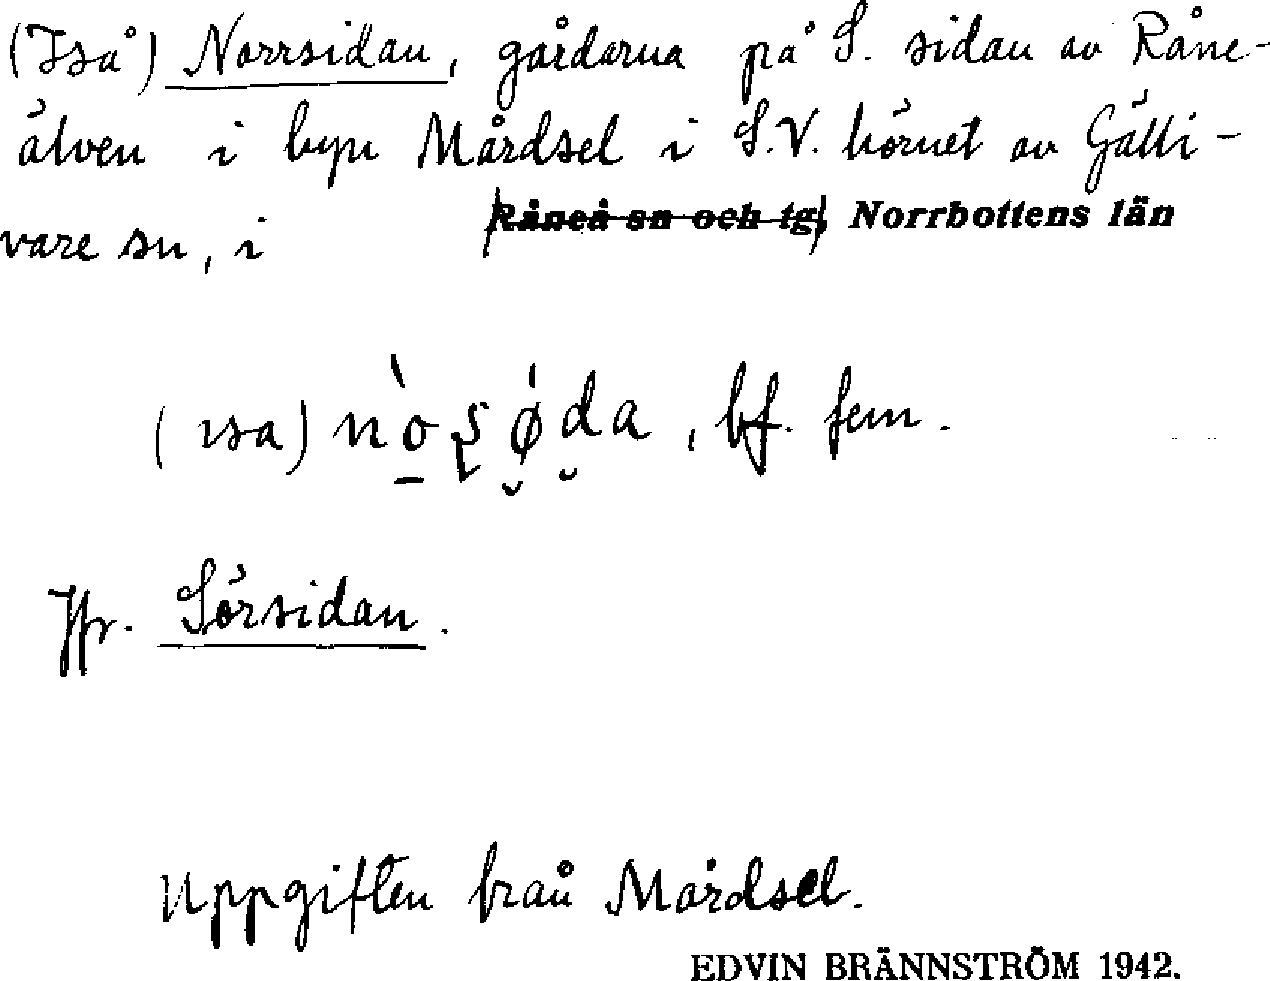 (Iså) Norrsidan, gårdarna på S. sidan av Råne-
älven i byn Mårdsel i S.V. hörnet av Gälli-
vare sn, i Råneå sn och tg, Norrbottens län
(ısa) nò̱ʂǿ̮d̮a, bf. fem.
Jfr. Sörsidan.
Uppgiften från Mårdsel.
EDVIN BRÄNNSTRÖM 1942.